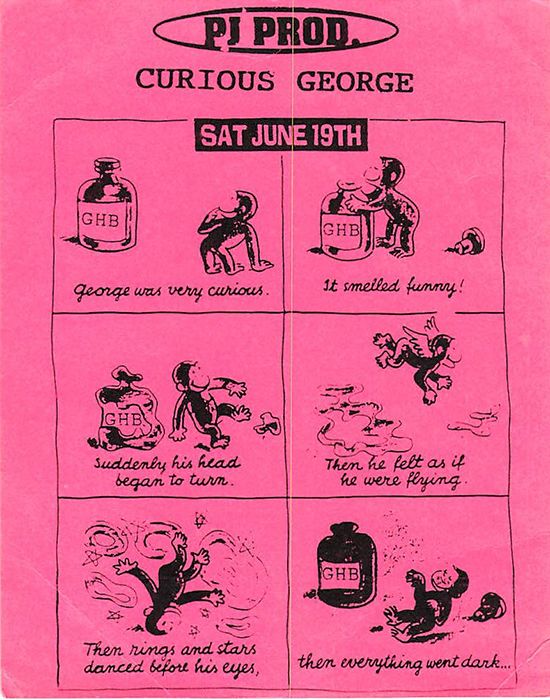 PJ PROD.
CURIOUS GEORGE
SAT JUNE 19TH
GHB
George was very curious.
GHB
It smelled funny!
GHB
Suddenly his head
began to turn.
Then he felt as if
he were flying.
Then rings and stars
danced before his eyes,
GHB
then everything went dark...